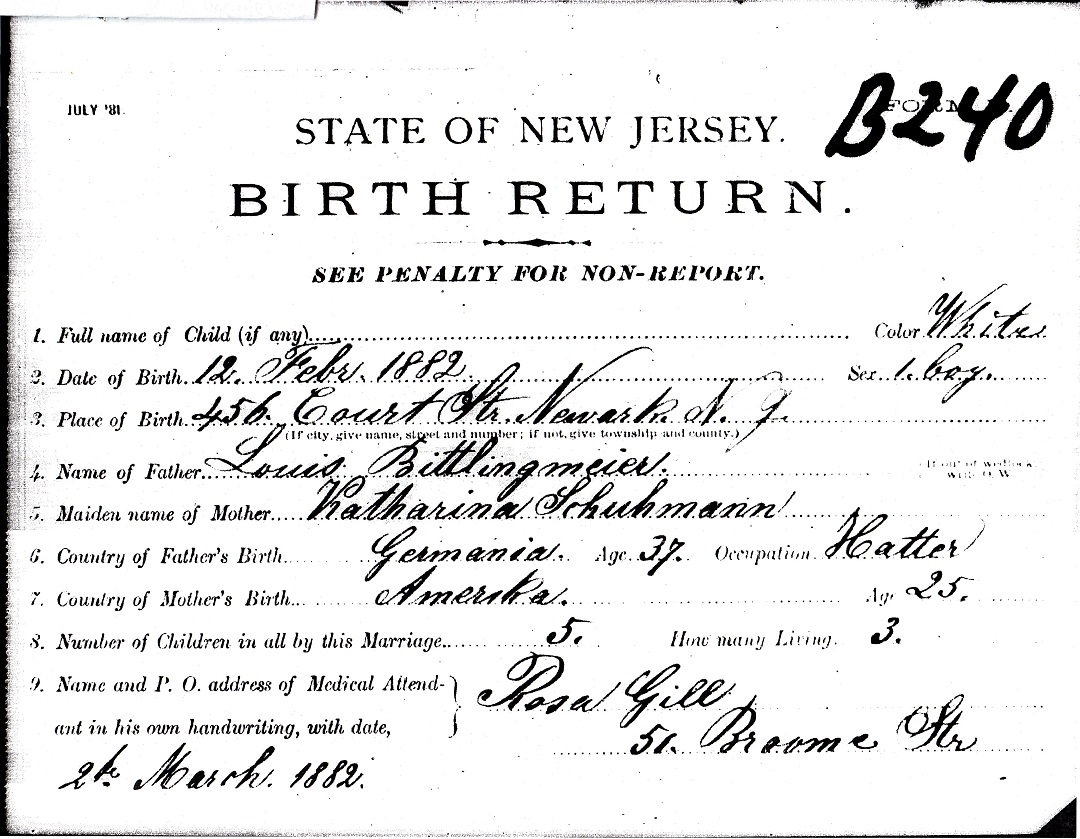 JULY '81.
B240
STATE OF NEW JERSEY.
BIRTH RETURN.
SEE PENALTY FOR NON-REPORT.
1. Full name of Child (if any) Color White
2. Date of Birth. 12. Febr. 1882. Sex 1. boy.
3. Place of Birth. 456. Court Str. Newark. N. J.
(If city, give name, street and number; if not, give township and county.)
4. Name of Father. Louis Bittlingmeier. (If out of wedlock, write O. W.
5. Maiden name of Mother Katharina Schuhmann
6. Country of Father's Birth Germania. Age 37. Occupation Hatter
7. Country of Mother's Birth Amerika. Age 25.
8. Number of Children in all by this Marriage 5. How many Living. 3.
9. Name and P. O. address of Medical Attend- Rosa Gill
ant in his own handwriting, with date, 51. Broome Str
2te March. 1882.